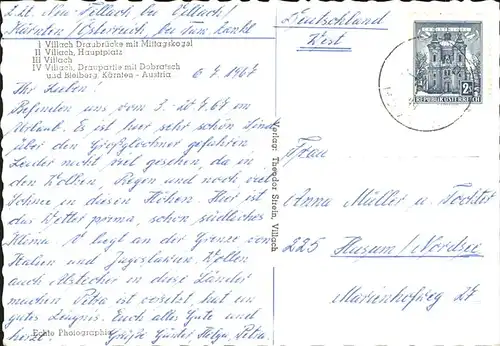 z.Zt. Neu-Fellach, bei Villach/
Kärnten/Österreich, bei Fam. Zankl
I Villach Draubrücke mit Mittagskogel
II Villach, Hauptplatz
III Villach
IV Villach, Draupartie mit Dobratsch
und Bleiberg, Kärnten - Austria
6.7.1967
Ihr Lieben!
Befinden uns vom 3. 7. 67 im
Urlaub. Es ist hier sehr schön. Sind
über den Großglockner gefahren.
Leider nicht viel gesehen, da in
den Wolken, Regen und noch viel
Schnee in diesen Höhen. Hier ist
das Wetter prima, schon südliches
Klima. V. liegt an der Grenze von
Italien und Jugoslavien. Wollen
auch Abstecher in diese Länder
machen. Petra ist versetzt, hat ein
gutes Zeugnis. Euch alles Gute und
Grüße Günter, Helga, Petra.
Echte Photographie
Verlag: Theodor Strein, Villach
Deutschland
West
2S
REPUBLIK ÖSTERREICH
Frau
Anna Müller u. Tochter
225 Husum/Nordsee
Marienhofweg 27